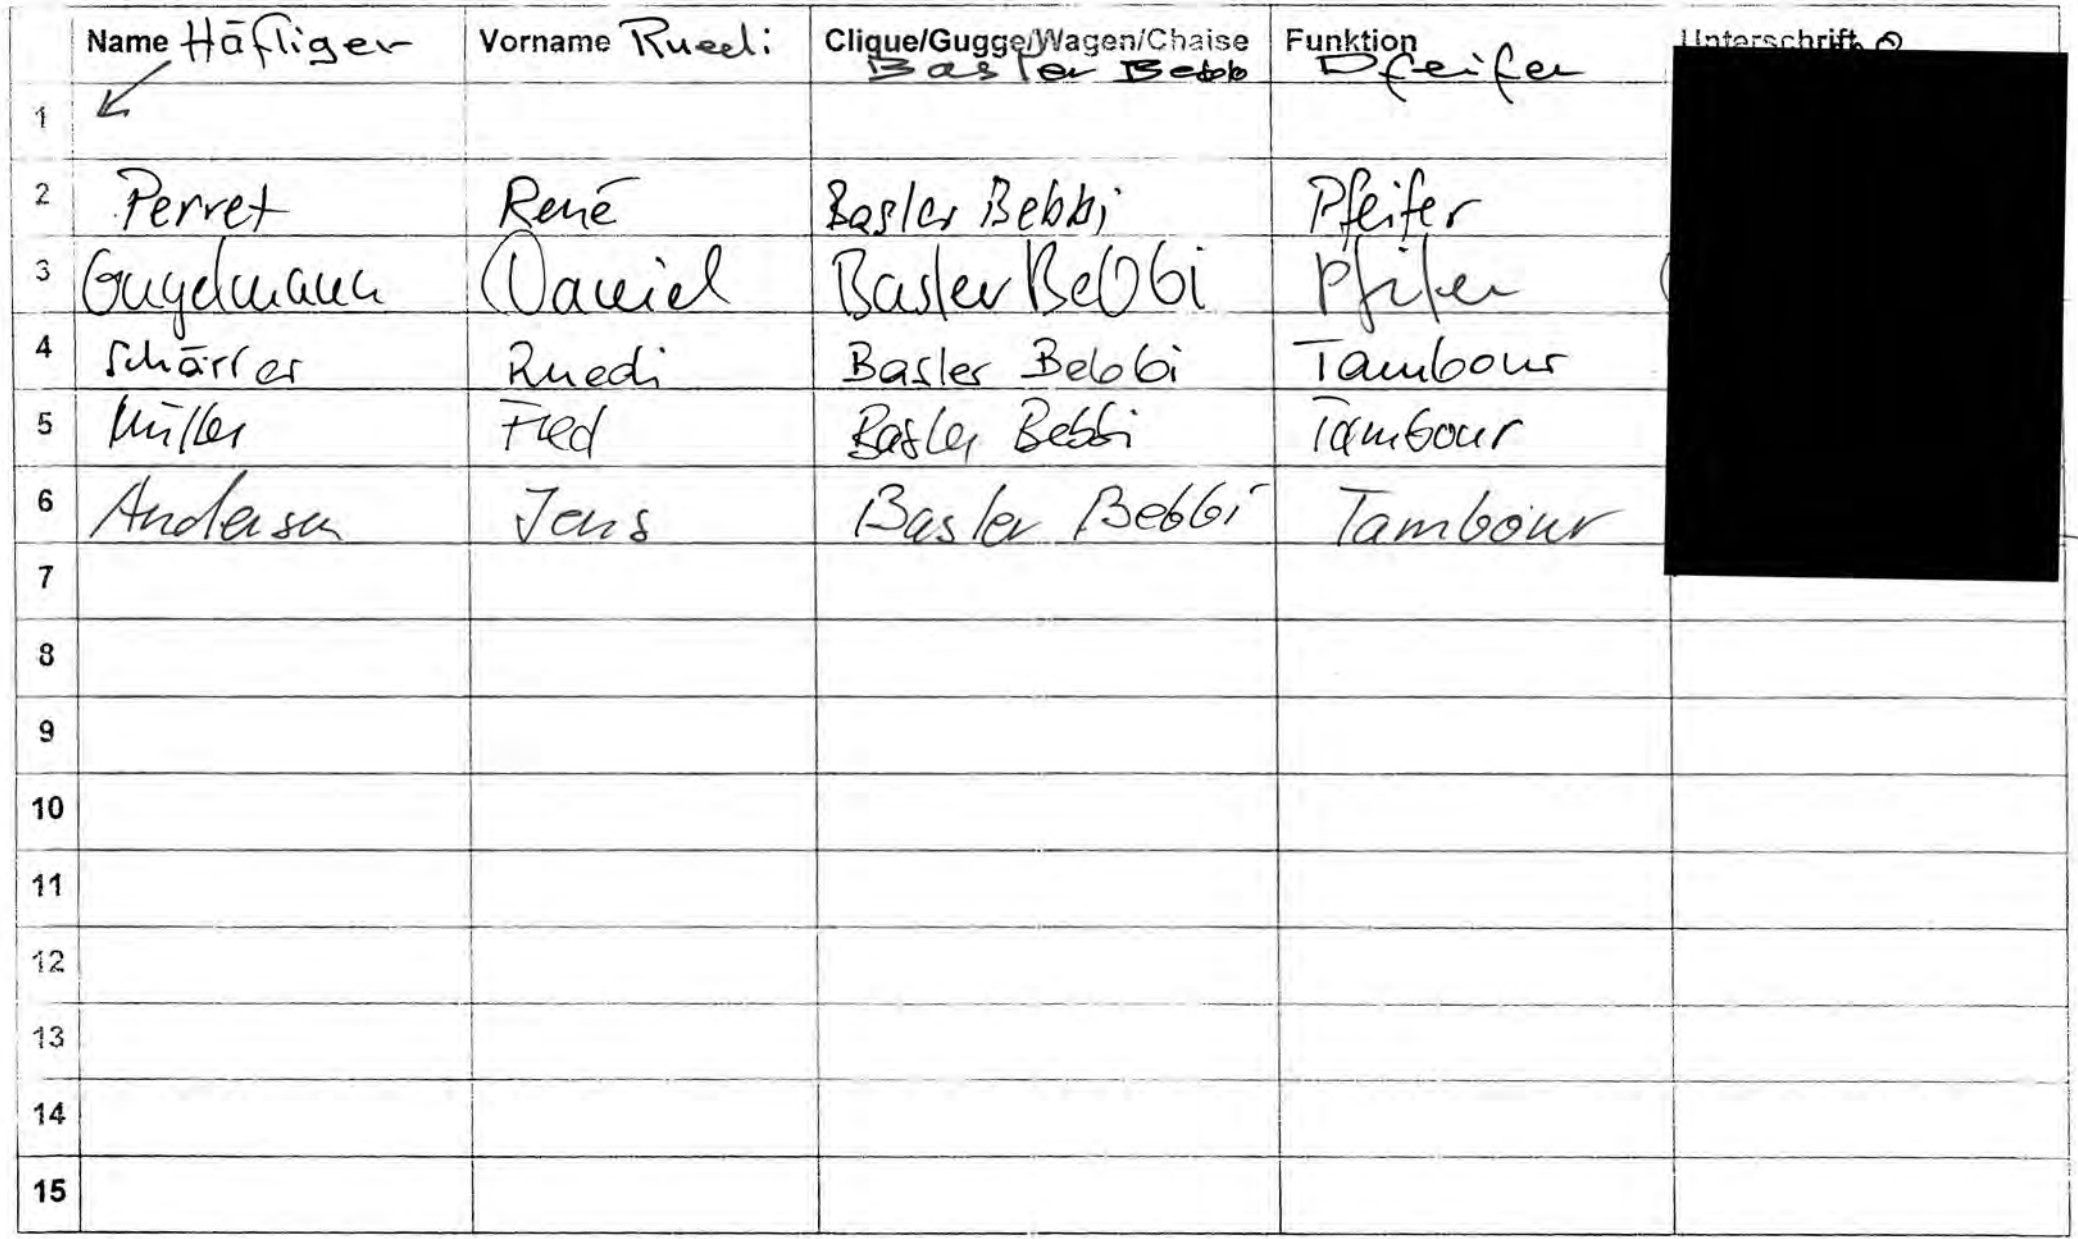 Name Häfliger Vorname Ruedi Clique/Gugge/Wagen/Chaise Funktion Unterschrift
Basler Bebbi Pfeifer
1
2 Perret René Basler Bebbi Pfeifer
3 Gugelmann Daniel Basler Bebbi Pfeifer
4 Schärrer Ruedi Basler Bebbi Tambour
5 Müller Fred Basler Bebbi Tambour
6 Andersen Jens Basler Bebbi Tambour
7
8
9
10
11
12
13
14
15